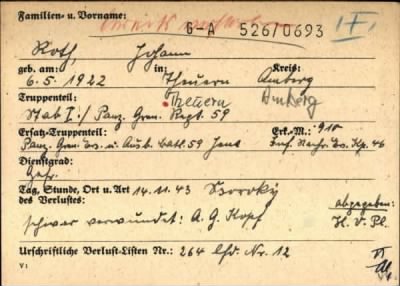 Familien- u. Vorname:
G-A 526/0693
Roth, Johann
geb. am: in: Kreis:
6.5.1922 Theuern Amberg
Truppenteil: Theuern Amberg
Stab I./Panz. Gren. Regt. 59
Ersatz-Truppenteil: Erk.-M.: 910
Panz. Gren. Ers. u. Ausb. Batl. 59 Jena Inf. Nachr. Ers. Kp. 46
Dienstgrad:
Gefr.
Tag, Stunde, Ort u. Art 14.11.43
des Verlustes: abgegeben:
schwer verwundet: A.G. Kopf H.V.Pl.
Urschriftliche Verlust-Listen Nr.: 264 lfd. Nr. 12
V1